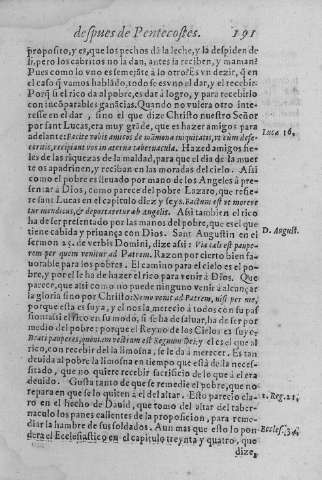 despues de Pentecostes. 191
proposito, y es, que los pechos dã la leche, y la despiden de
si, pero los cabritos no la dan, antes la reciben, y maman?
Pues como lo vno es semejãte a lo otro? Es vn dezir, q̃ en
el caso q̃ vamos hablãdo, todo se es vno el dar, y el recebir.
Porq̃ si el rico da al pobre, es dar a logro, y para recebirlo
con incõparables ganãcias. Quando no vuiera otro inte-
resse en el dar, sino el que dize Christo nuestro Señor
por san Lucas, era muy grãde, que es hazer amigos para
adelante: Facite vobis amicos de mãmona iniquitatis, vt cum defe-
Luca 16.
ceritis, recipiant vos in æterna tabernacula. Hazed amigos fie-
les de las riquezas de la maldad, para que el dia de la muer
te os apadrinen, y reciban en las moradas del cielo. Assi
como el pobre es lleuado por mano de los Angeles à pre-
sentar à Dios, como parece del pobre Lazaro, que refie-
re san Lucas en el capitulo diez y seys. Factum est vt morere
tur mendicus, & deportaretur ab angelis. Assi tambien el rico
ha de ser presentado por las manos del pobre, que es el que
tiene cabida y priuança con Dios. Sant Augustin en el
D. August.
sermon 25. de verbis Domini, dize assi: Via cœli est paupe-
rem per quem venitur ad Patrem. Razon por cierto bien fa-
uorable para los pobres. El camino para el cielo es el po-
bre, y por el se ha de hazer el rico para venir à Dios. Que
parece, que assi como no puede ninguno venir à alcançar
la gloria sino por Christo: Nemo venit ad Patrem, nisi per me,
porque esta es suya, y el nos la merecio à todos con su pas
sion: assi el rico en su modo, si se ha de saluar, ha de ser por
medio del pobre: porque el Reyno de los Cielos es suyo:
Beati pauperes, quoniam vestrum est Regnum Dei. y el es el que al
rico, con recebir del la limosna, se le da à merecer. Es tan
deuida al pobre la limosna en tiempo que està de la neces-
sitado, que no quiere recebir sacrificio de lo que à el era
deuido. Gusta tanto de que se remedie el pobre, que no
repara en que se lo quiten à el del altar. Esto parecio cla-
ro en el hecho de Dauid, que tomo del altar del taber-
1. Reg. 21.
naculo los panes calientes de la proposicion, para reme-
diar la hambre de sus soldados. Aun mas que esto lo pon
dera el Ecclesiastico en el capitulo treynta y quatro, que
Eccles. 34.
dize,